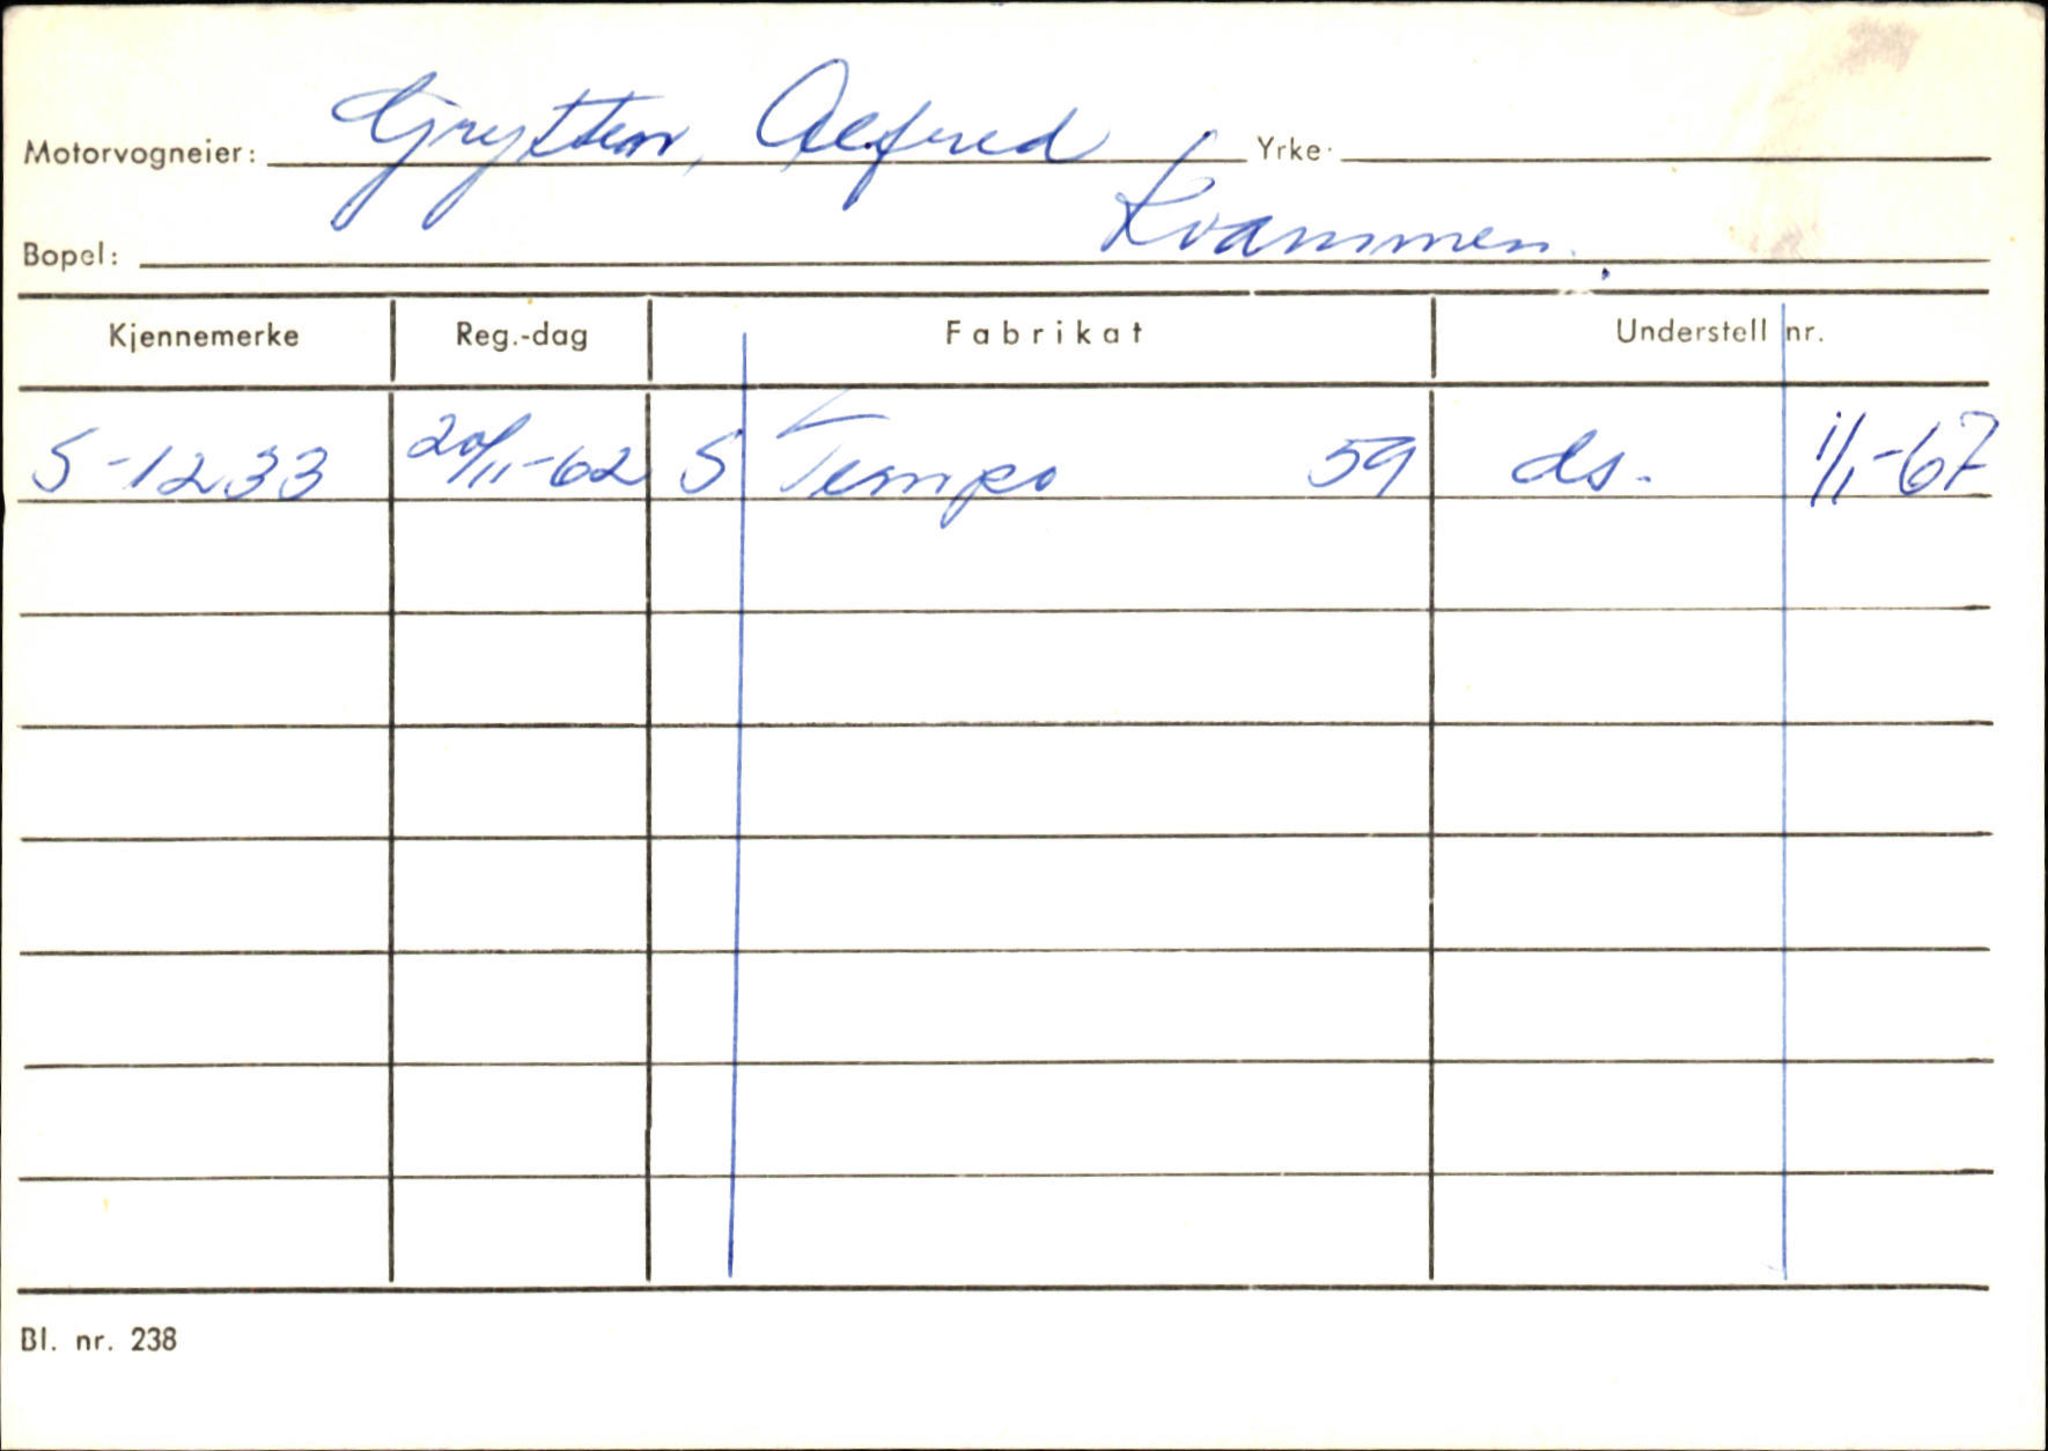 Motorvogneier: Grytten, Alfred Yrke:
Bopel: Kvammen.
Kjennemerke Reg.-dag Fabrikat Understell nr.
S-1233 20/11-62 S Tempo 59 ds. 1/1-67
Bl. nr. 238